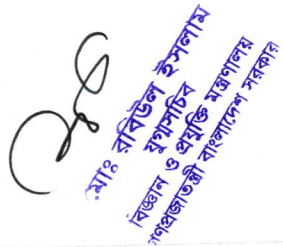 মোঃ রবিউল ইসলাম
যুগ্মসচিব
বিজ্ঞান ও প্রযুক্তি মন্ত্রণালয়
গণপ্রজাতন্ত্রী বাংলাদেশ সরকার